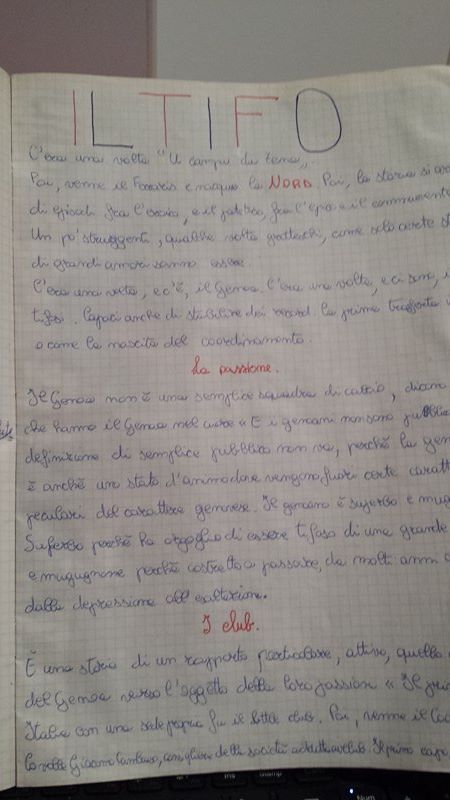 IL TIFO
C'era una volta "U campu du tema".
Poi, venne il Ferraris e nacque la NORD. Poi, la storia si
di episodi fra l'eroico, e il patetico, fra l'epico e il commovente
Un po' struggenti, qualche volta grotteschi, come solo certe
di grandi amori sanno essere.
C'era una volta, e c'è, il Genoa. C'era una volta, e ci sono, i
tifosi. Capaci anche di stabilire dei record. La prima trasferta
o come la nascita del coordinamento.
La passione.
Il Genoa non è una semplice squadra di calcio, dicono
che hanno il Genoa nel cuore « E i genoani non sono pubblico
definizione di semplice pubblico non va, perché la
è anche uno stato d'animo dove vengono fuori certe
peculiari del carattere genovese. Il genoano è superbo e
Superbo perché ha orgoglio di essere tifoso di una grande
e mugugnone perché costretto a passare, da molti anni
dalla depressione all'esaltazione.
I club.
È una storia di un rapporto particolare, attivo, quello
del Genoa verso l'oggetto della loro passione « Il
Italia con una sede propria fu il little club. Poi, venne il
lo volle Giacomo consigliere della società Il primo